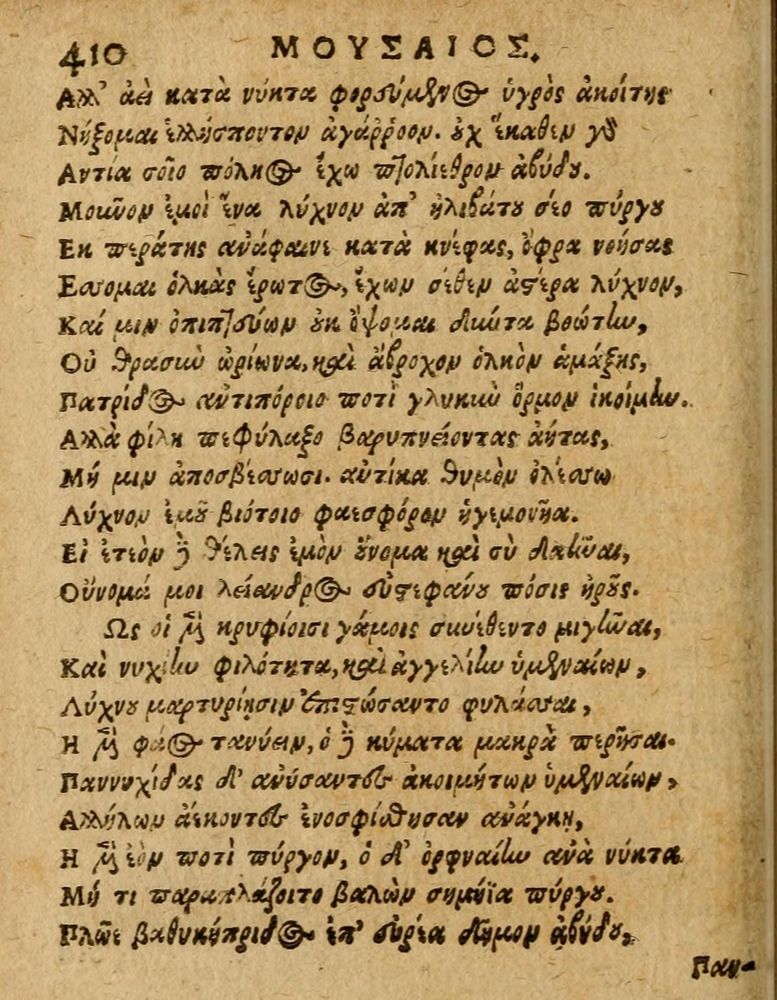 410 ΜΟΥΣΑΙΟΣ.
Αλλ' αἰεὶ κατὰ νύκτα φορεύμενος ὑγρὸς ἀκοίτης
Νήξομαι ἑλλήσποντον ἀγάρροον. οὐχ ἕκαθεν γὰρ
Αντία σοῖο πόληος ἔχω πτολίεθρον ἀβύδου.
Μοῦνον ἐμοὶ ἕνα λύχνον ἀπ' ἠλιβάτου σέο πύργου
Εκ περάτης ἀνάφαινε κατὰ κνέφας, ὄφρα νοήσας
Εσσομαι ὁλκὰς ἔρωτος, ἔχων σέθεν ἀστέρα λύχνον,
Καί μιν ὀπιπτεύων οὐκ ὄψομαι δύοντα βοώτην,
Οὐ θρασιῶ ὠρίωνα, καὶ ἄβροχον ὁλκὸν ἁμάξης,
Πατρίδος ἀντιπόροιο ποτὶ γλυκιῶ ὅρμον ἱκοίμην.
Αλλὰ φίλη πεφύλαξο βαρυπνείοντας ἀήτας,
Μή μιν ἀποσβέσσωσι. αὐτίκα θυμὸν ὀλέσσω
Λύχνον ἐμοῦ βιότοιο φαεσφόρον ἡγεμονῆα.
Εἰ ἐτεὸν δὲ θέλεις ἐμὸν οὔνομα καὶ σὺ δαῆναι,
Οὔνομά μοι λείανδρος ἐυστεφάνου πόσις ἡροῦς.
Ως οἱ μὲν κρυφίοισι γάμοις συνέθεντο μιγῆναι,
Καὶ νυχίην φιλότητα, καὶ ἀγγελίην ὑμεναίων,
Λύχνου μαρτυρίησιν ἐπιστώσαντο φυλάσσειν,
Η μὲν φάος τανύειν, ὁ δὲ κύματα μακρὰ περῆσαι.
Παννυχίδας δ' ἀνύσαντες ἀκοιμήτων ὑμεναίων,
Αλλήλων ἀέκοντες ἐνοσφίσθησαν ἀνάγκῃ,
Η μὲν ἑὸν ποτὶ πύργον, ὁ δ' ὀρφναίην ἀνὰ νύκτα
Μή τι παραπλάζοιτο βαλὼν σημήϊα πύργου.
Πλῶε βαθυκρήπιδος ἐπ' εὐρέα δῆμον ἀβύδου,
Παν-